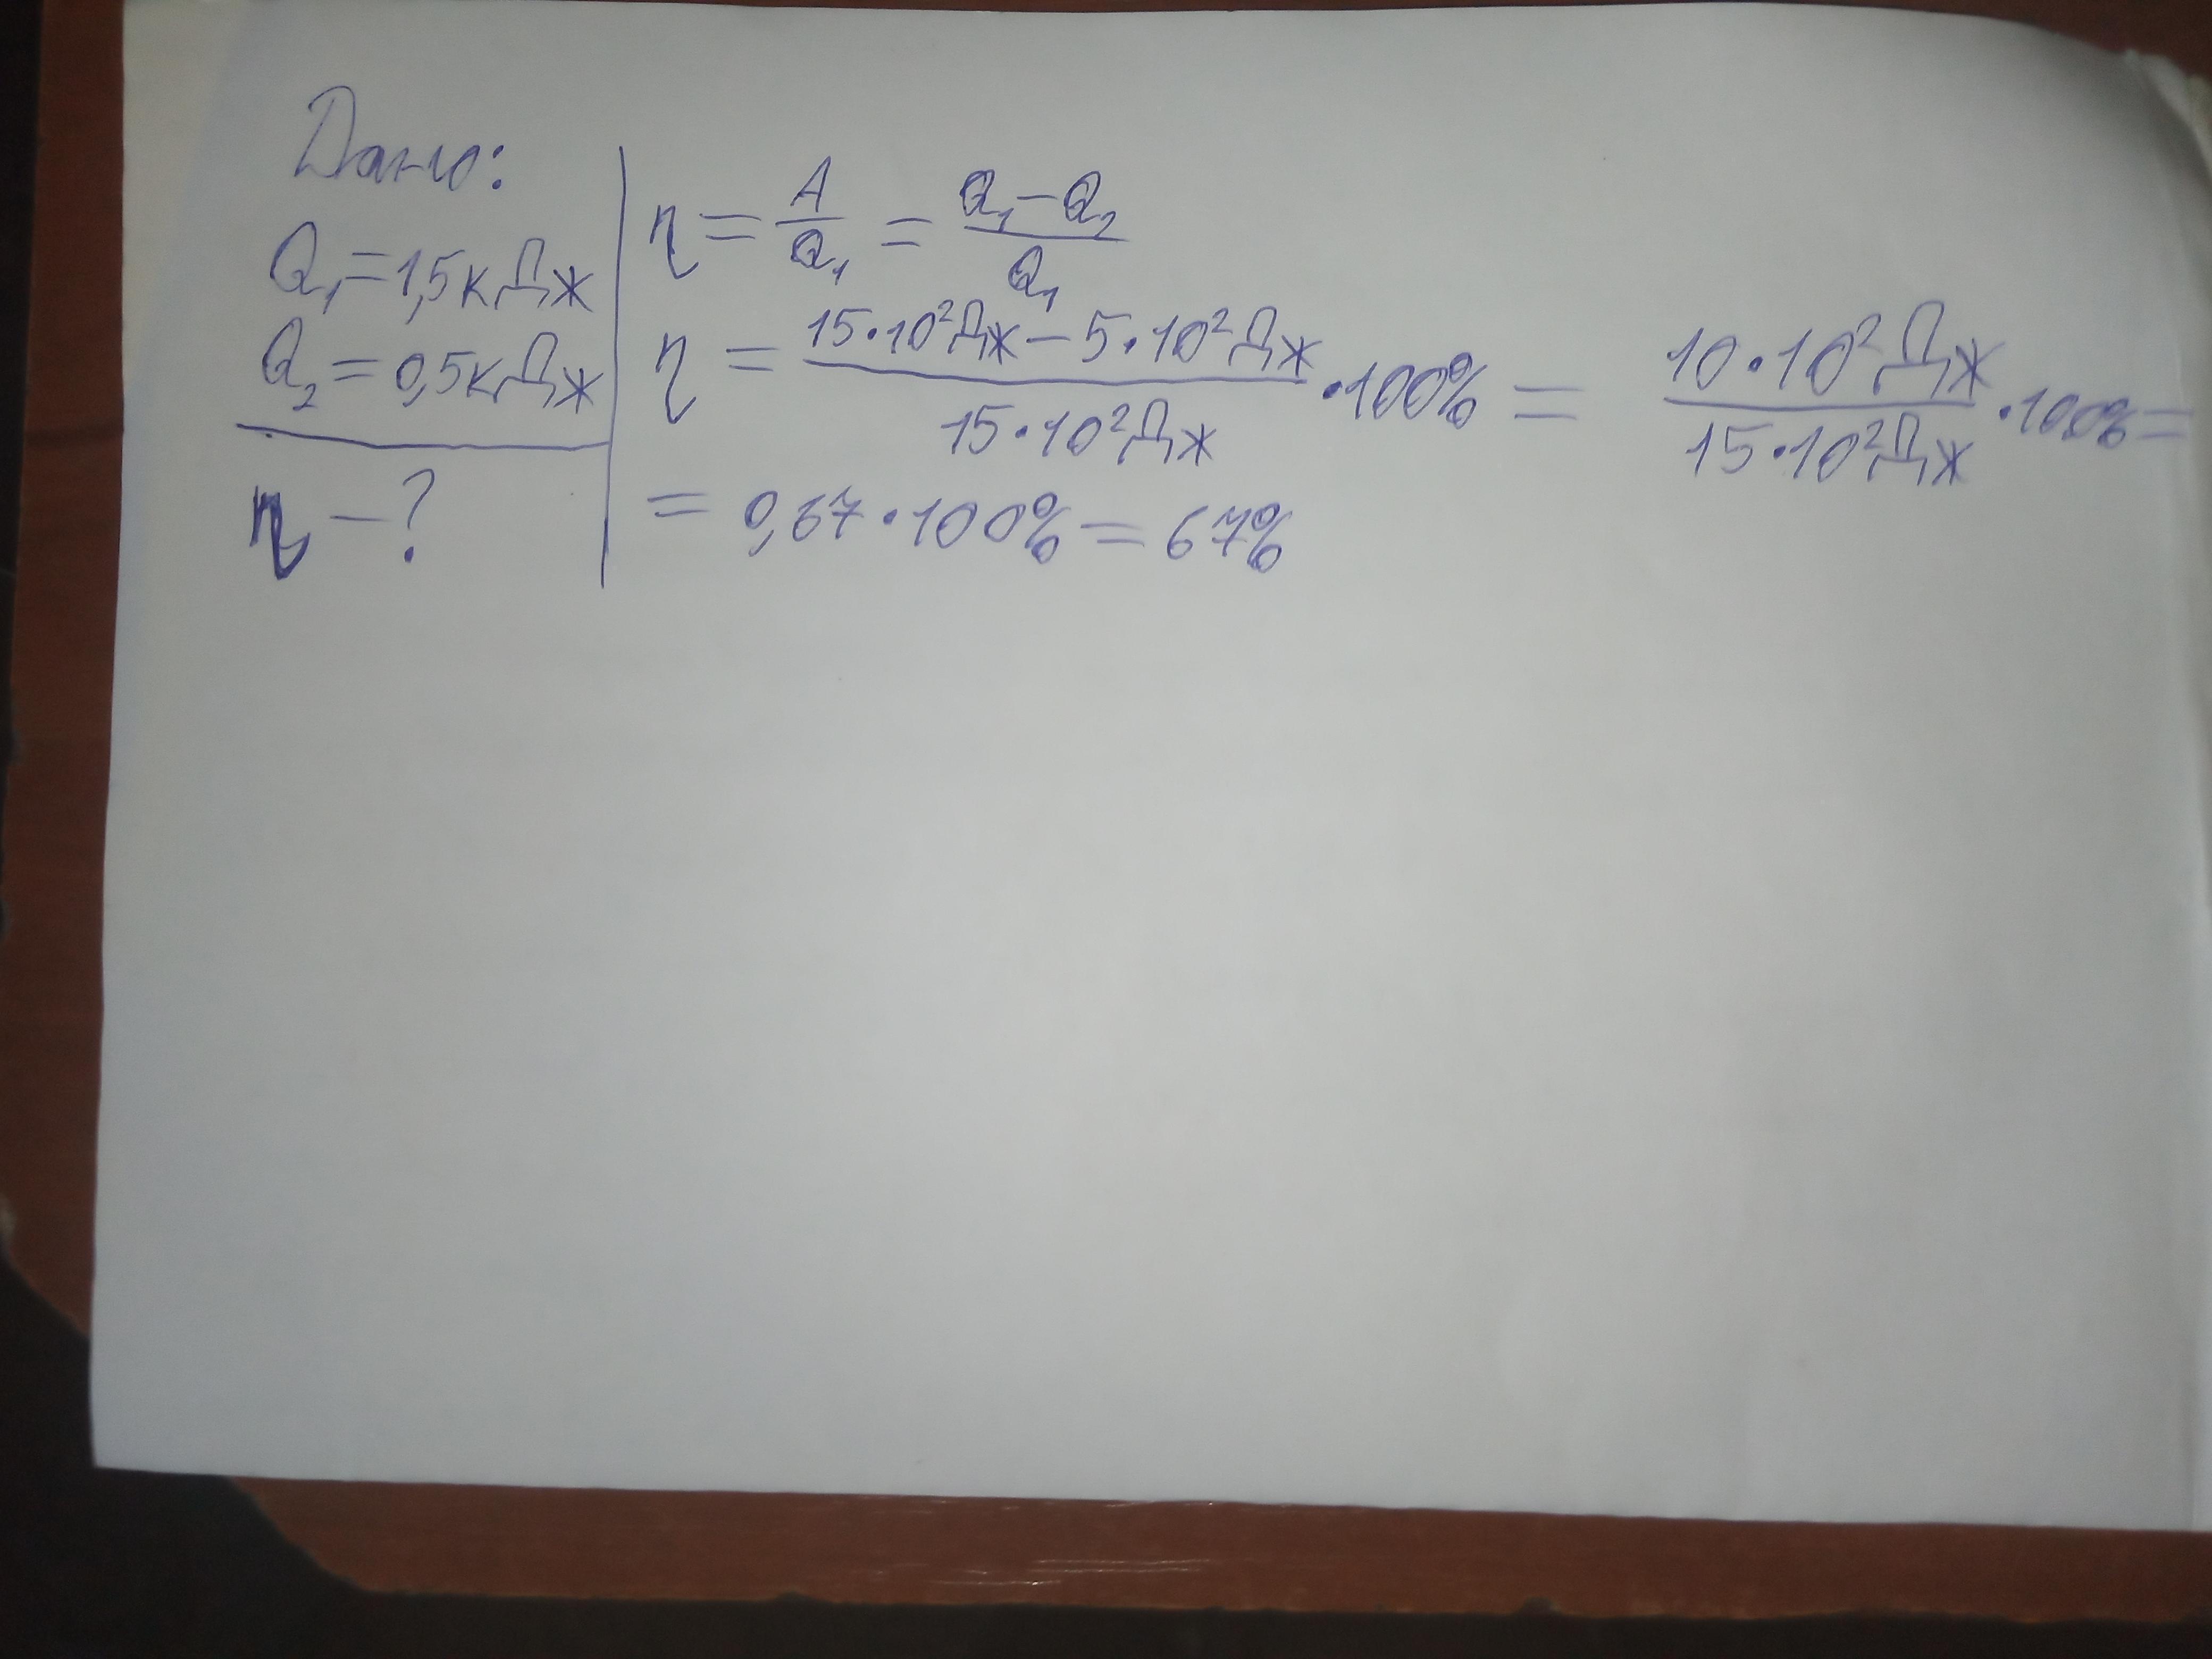 Дано:
Q₁=1,5кДж
Q₂=0,5кДж
η-?
η = A/Q₁ = (Q₁-Q₂)/Q₁
η = (15·10²Дж-5·10²Дж)/(15·10²Дж)·100% = (10·10²Дж)/(15·10²Дж)·100%=
= 0,67·100%=67%